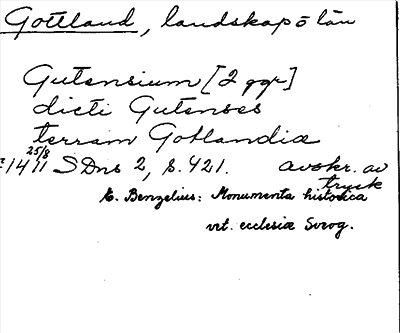 Gottland, landskap o län
Gutensium [2 ggr]
dicti Gutenses
terram Gotlandiæ
25/8 1411 SDns 2, s. 421. avskr. av tryck
E. Benzelius: Monumenta historica
vet. ecclesiæ Sveog.